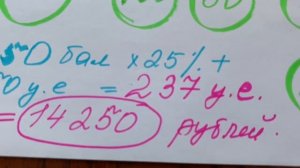 50 бал x 25% +
0 у.е = 237 у.е.
= 14250 рублей.